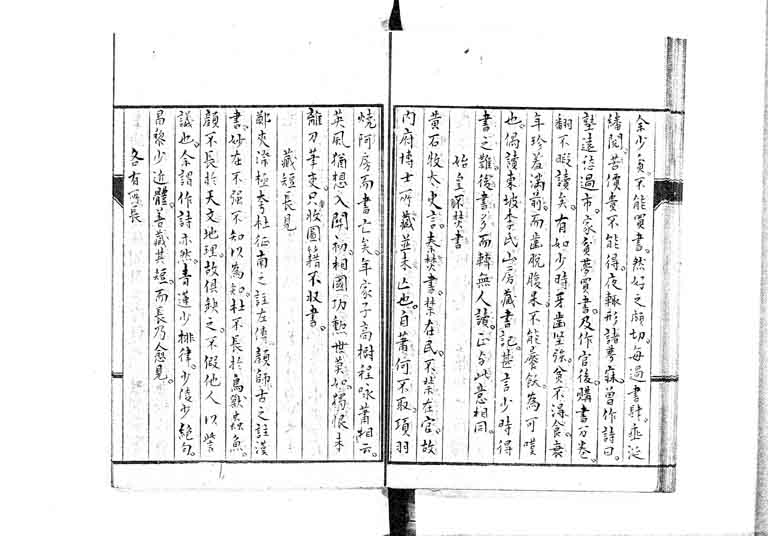 余少貧不能買書然好之頗切每過書肆垂涎
繙閱苦價貴不能得夜輒形諸夢寐曾作詩曰
塾遠愁過市家貧夢買書及作官後購書萬卷
翻不暇讀矣有如少時牙齒堅強貧不得食衰
年珍羞滿前而齒脫腹果不能饜飫為可嘆
也偶讀東坡李氏山房藏書記甚言少時得
書之難後書多而轉無人讀正與此意相同
始皇焚書
黃石牧太史言秦焚書禁在民不禁在官故
內府博士所藏並未亡也自蕭何不取項羽
燒阿房而書亡矣年家子高樹程咏蕭相云
英風猶想入關初相國功勳世莫如獨恨未
離刀筆吏只收圖籍不收書
藏短長見
鄭夾漈極夸杜征南之註左傳顏師古之註漢
書妙在不強不知以為知杜不長於鳥獸蟲魚
顏不長於天文地理故俱缺之不假他人以訾
議也余謂作詩亦然青蓮少排律少陵少絕句
昌黎少近體善藏其短而長乃愈見
各有所長